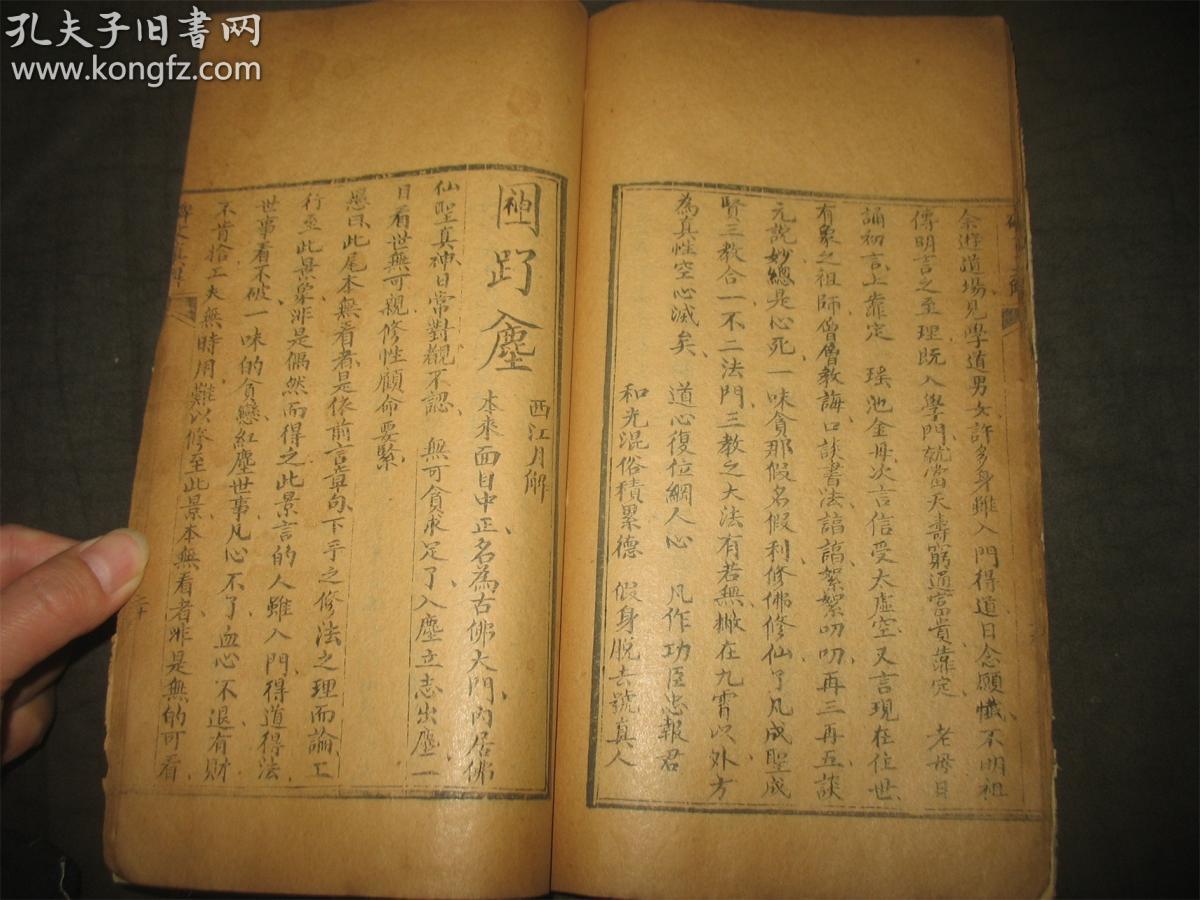 孔夫子旧书网
www.kongfz.com
余遊道場見學道男女許多身雖入門得道日念願懺不明祖
傳明言之至理既入學門就當天壽窮通富貴靠定 老母日
誦初言上靠定 瑤池金母次言信受太虛空又言現在位世
有象之祖師僧僧教誨口談書法諄諄絮絮叨叨再三再五談
元說妙總是心死一味貪那假名假利修佛修仙了凡成聖成
賢三教合一不二法門三教之大法有若無撇在九霄以外方
為真性空心滅矣
道心復位綱人心 凡作功臣忠報君
和光混俗積累德 假身脫去號真人
入塵
西江月解
本來面目中正名為古佛大門內居佛
仙聖真神日常對觀不認 無可貪求足了入塵立志出塵一
日看世無可親修性顧命要緊
愚曰此尾本無看者是依前言章句下手之修法之理而論工
行至此景象非是偶然而得之此景言的人雖入門得道得法
世事看不破一味的貪戀紅塵世事凡心不了血心不退有財
不肯捨工夫無時用難以修至此景本無看者非是無的可看
二十